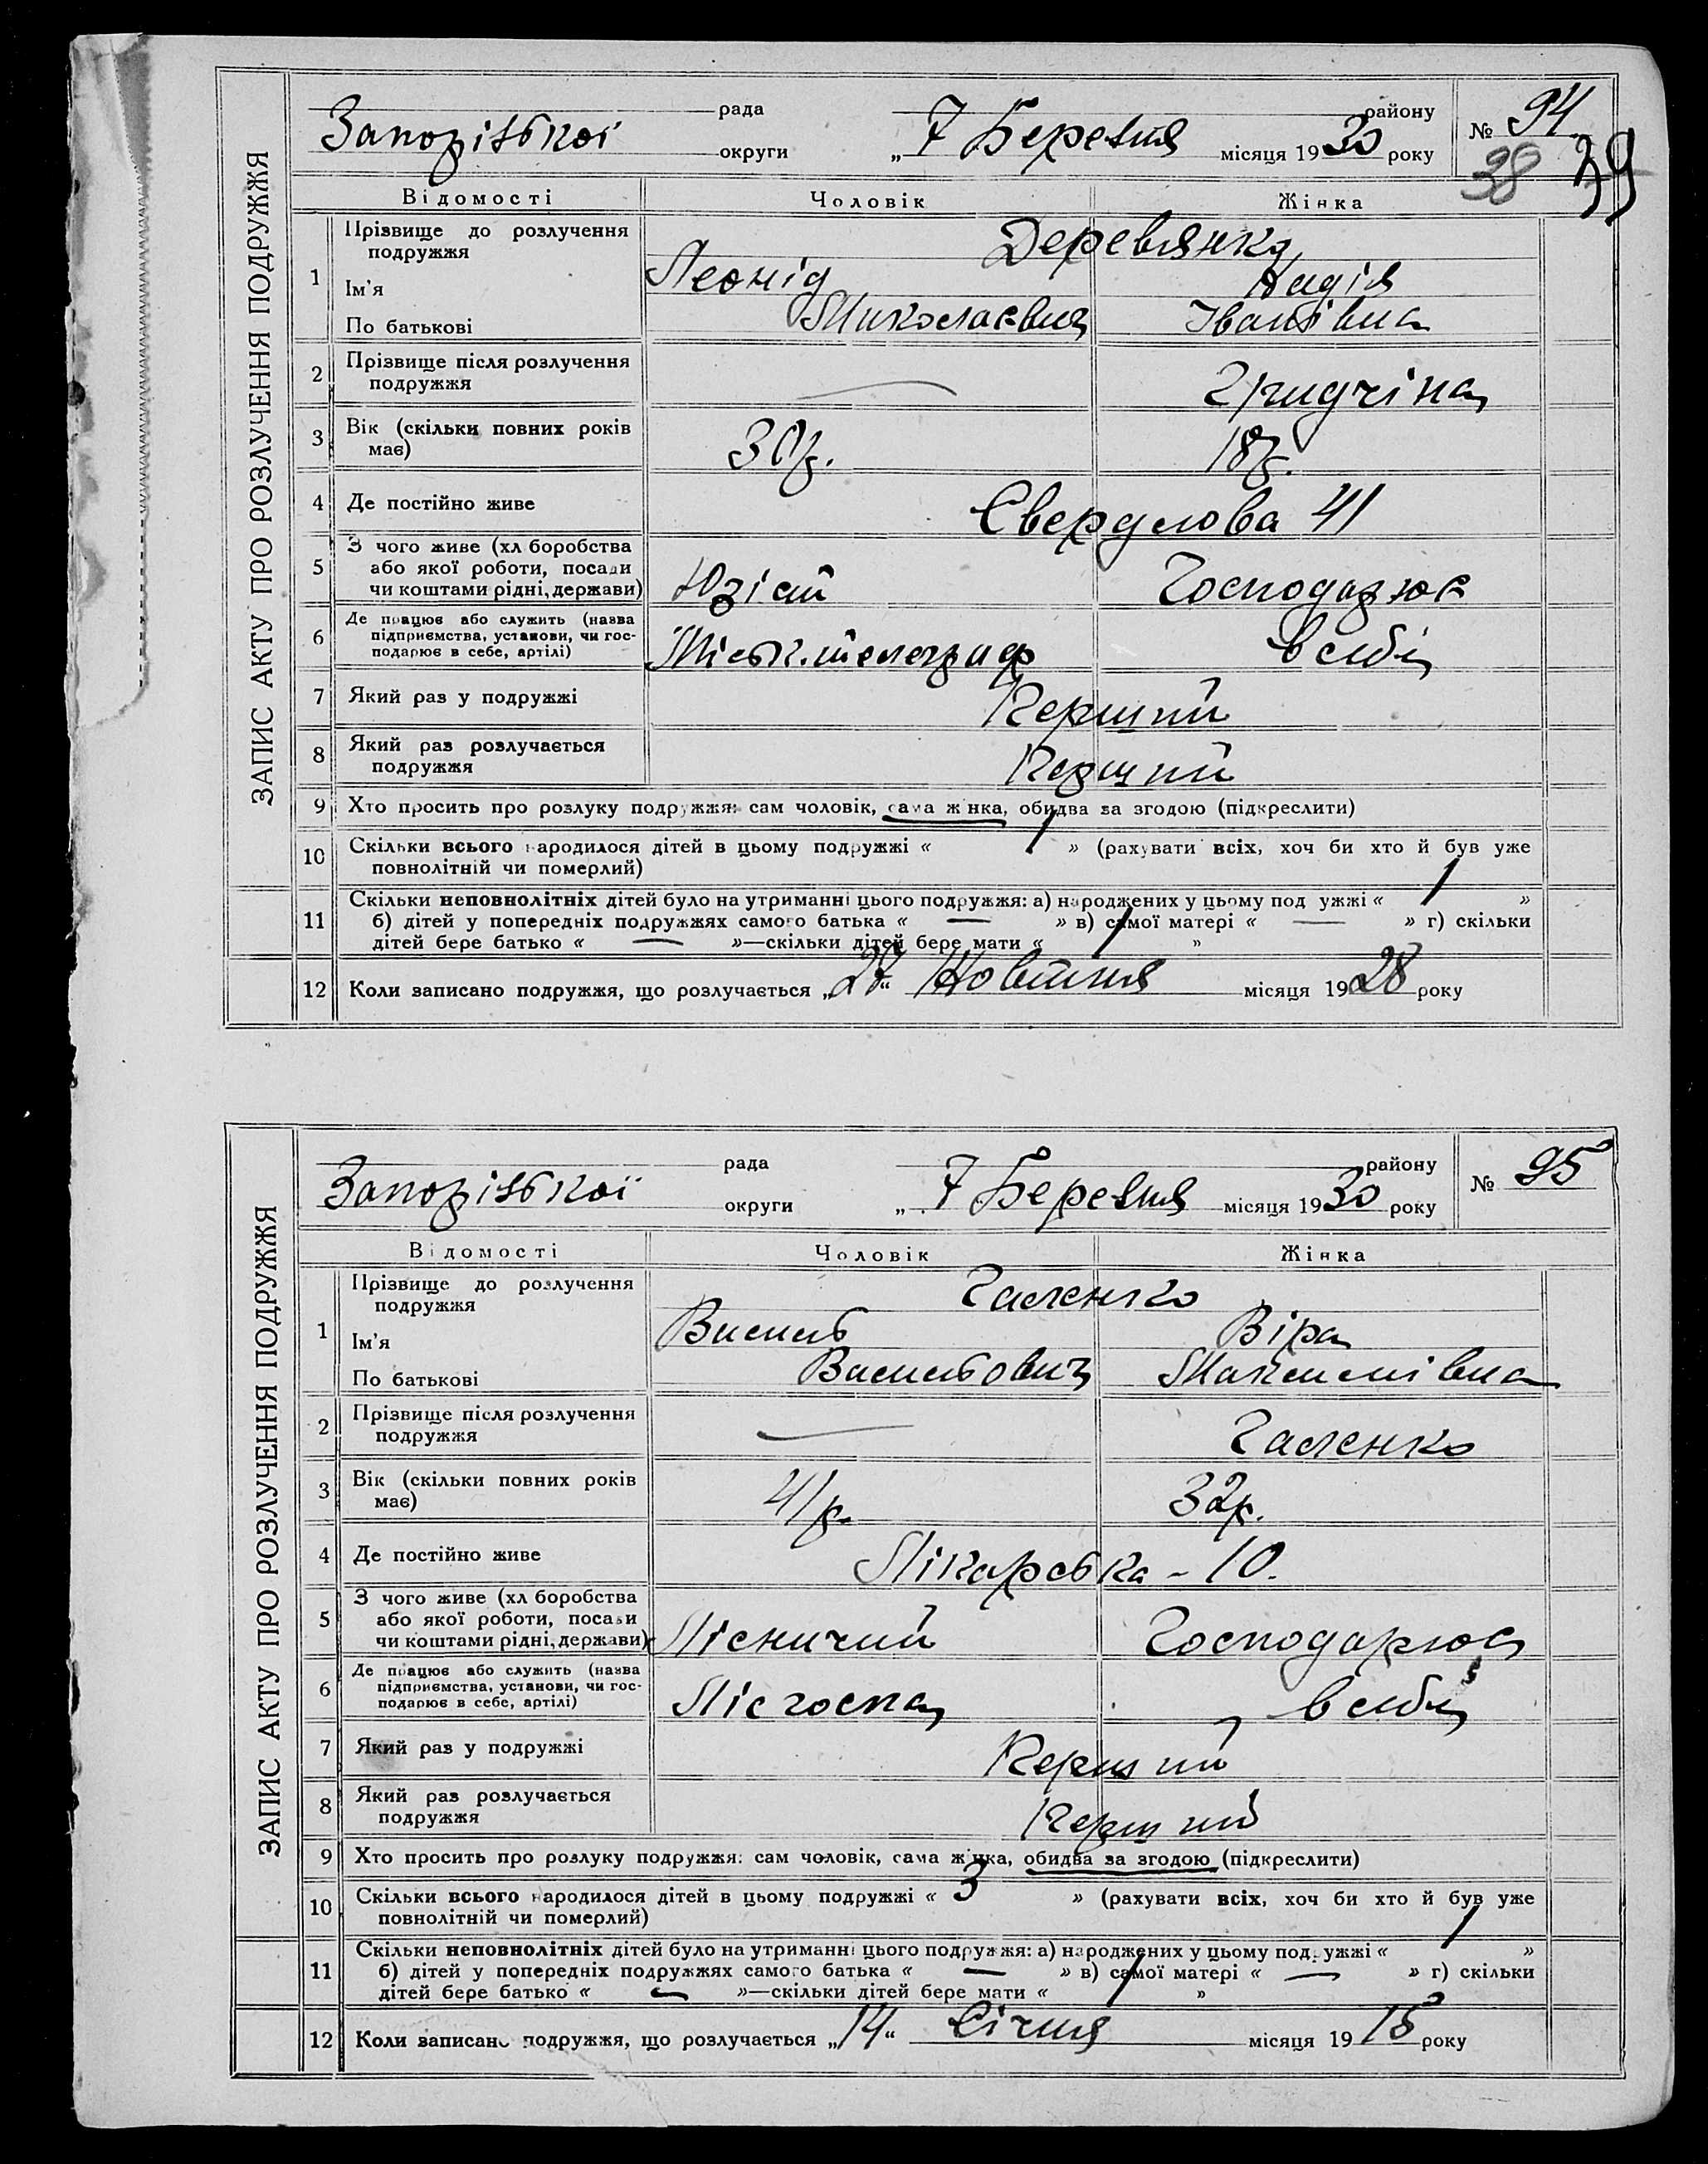 ЗАПИС АКТУ ПРО РОЗЛУЧЕННЯ ПОДРУЖЖЯ
рада району № 94
Запорізької округи „ 7 Березня місяця 1930 року
38 39
Відомості Чоловік Жінка
1 Прізвище до розлучення подружжя Деревянко
Ім'я Леонід Надія
По батькові Миколаєвич Іванівна
2 Прізвище після розлучення
подружжя — Гридчіна
3 Вік (скільки повних років
має) 30р. 18р.
4 Де постійно живе Свердлова 41
5 З чого живе (хліборобства
або якої роботи, посади
чи коштами рідні, держави) Юзіст Господарює
6 Де працює або служить (назва
підприємства, установи, чи гос-
подарює в себе, артілі) Міськ. телеграф в себе
7 Який раз у подружжі Перший
8 Який раз розлучається
подружжя Перший
9 Хто просить про розлуку подружжя: сам чоловік, сама жінка, обидва за згодою (підкреслити)
10 Скільки всього народилося дітей в цьому подружжі « 1 » (рахувати всіх, хоч би хто й був уже
повнолітній чи померлий)
11 Скільки неповнолітніх дітей було на утриманні цього подружжя: а) народжених у цьому подружжі « 1 »
б) дітей у попередніх подружжях самого батька « — » в) самої матері « — » г) скільки
дітей бере батько « — »—скільки дітей бере мати « 1 »
12 Коли записано подружжя, що розлучається „27“ Жовтня місяця 1928 року
ЗАПИС АКТУ ПРО РОЗЛУЧЕННЯ ПОДРУЖЖЯ
рада району № 95
Запорізької округи „ 7 Березня місяця 1930 року
Відомості Чоловік Жінка
1 Прізвище до розлучення
подружжя Галенко
Ім'я Василь Віра
По батькові Васильович Максимівна
2 Прізвище після розлучення
подружжя — Галенко
3 Вік (скільки повних років
має) 41р. 32р.
4 Де постійно живе Лікарська - 10.
5 З чого живе (хліборобства
або якої роботи, посади
чи коштами рідні, держави) Лісничий Господарює
6 Де працює або служить (назва
підприємства, установи, чи гос-
подарює в себе, артілі) Лісгоспа в себе
7 Який раз у подружжі Перший
8 Який раз розлучається
подружжя Перший
9 Хто просить про розлуку подружжя: сам чоловік, сама жінка, обидва за згодою (підкреслити)
10 Скільки всього народилося дітей в цьому подружжі « 3 » (рахувати всіх, хоч би хто й був уже
повнолітній чи померлий)
11 Скільки неповнолітніх дітей було на утриманні цього подружжя: а) народжених у цьому подружжі « 1 »
б) дітей у попередніх подружжях самого батька « — » в) самої матері « — » г) скільки
дітей бере батько « — »—скільки дітей бере мати « 1 »
12 Коли записано подружжя, що розлучається „14“ Січня місяця 1915 року